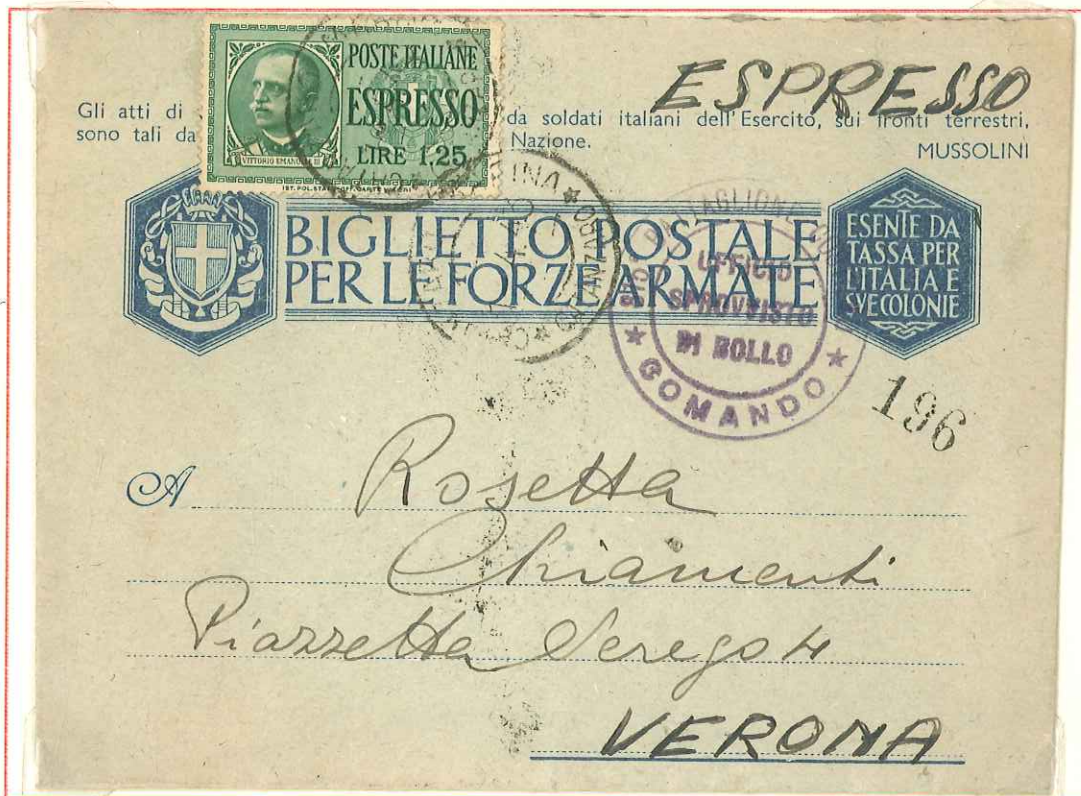 ESPRESSO
POSTE ITALIANE
ESPRESSO
LIRE 1,25
VITTORIO EMANUELE III
Gli atti di da soldati italiani dell'Esercito, sui fronti terrestri,
sono tali da Nazione.
MUSSOLINI
BIGLIETTO POSTALE
PER LE FORZE ARMATE
ESENTE DA
TASSA PER
L'ITALIA E
SVE COLONIE
BATTAGLIONE
UFFICIO
SPROVVISTO
DI BOLLO
★ COMANDO ★
196
A Rosetta
Chiamenti
Piazzetta Serego 4
VERONA